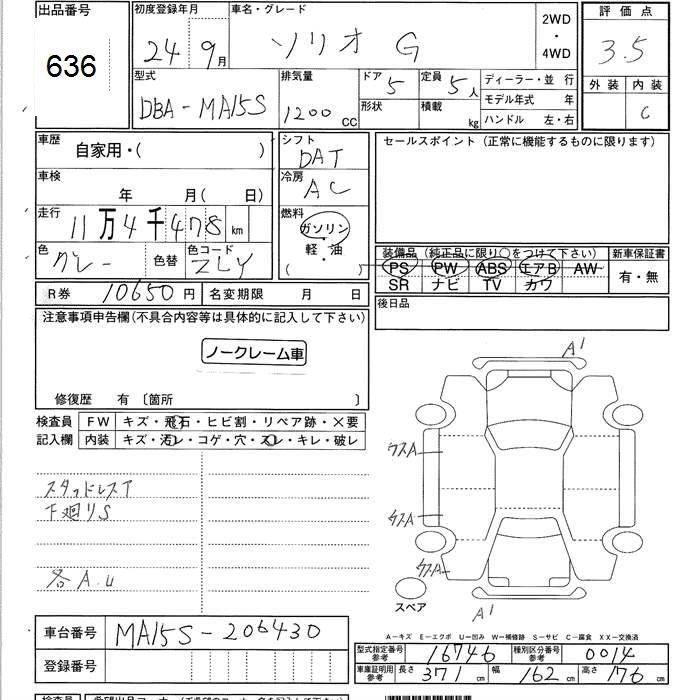 出品番号 初度登録年月 車名・グレード 2WD・4WD 評価点
636 24 9月 ソリオ G 3.5
型式 排気量 ドア 5 定員 5人 ディーラー・並 行 外装 内装
DBA-MA15S 1200 CC 形状 積載 kg モデル年式 年 C
ハンドル 左・右
車歴 自家用・( ) シフト DAT セールスポイント (正常に機能するものに限ります)
車検 年 月( 日) 冷房 AC
走行 11万4千478km 燃料 ガソリン・軽・油 ( )
色 グレー 色替 色コード ZLY
装備品 (純正品に限り○をつけて下さい) 新車保証書
PS PW ABS エアB AW 有・無
SR ナビ TV カワ
R券 10650円 名変期限 月 日 後日品
注意事項申告欄(不具合内容等は具体的に記入して下さい)
ノークレーム車
修復歴 有 〔箇所 〕
検査員 FW キズ・飛石・ヒビ割・リペア跡・×要
記入欄 内装 キズ・汚レ・コゲ・穴・スレ・キレ・破レ
A1
クスA
スタッドレスT
下廻りS
クスA
クスA
各A.U
スペア
A1
車台番号 MA15S-206430
A-キズ E-エクボ U-凹み W-補修跡 S-サビ C-腐食 XX-交換済
型式指定番号 参考 16746 種別区分番号 参考 0014
登録番号
車庫証明用 参考 長さ 371cm 幅 162cm 高さ 176cm